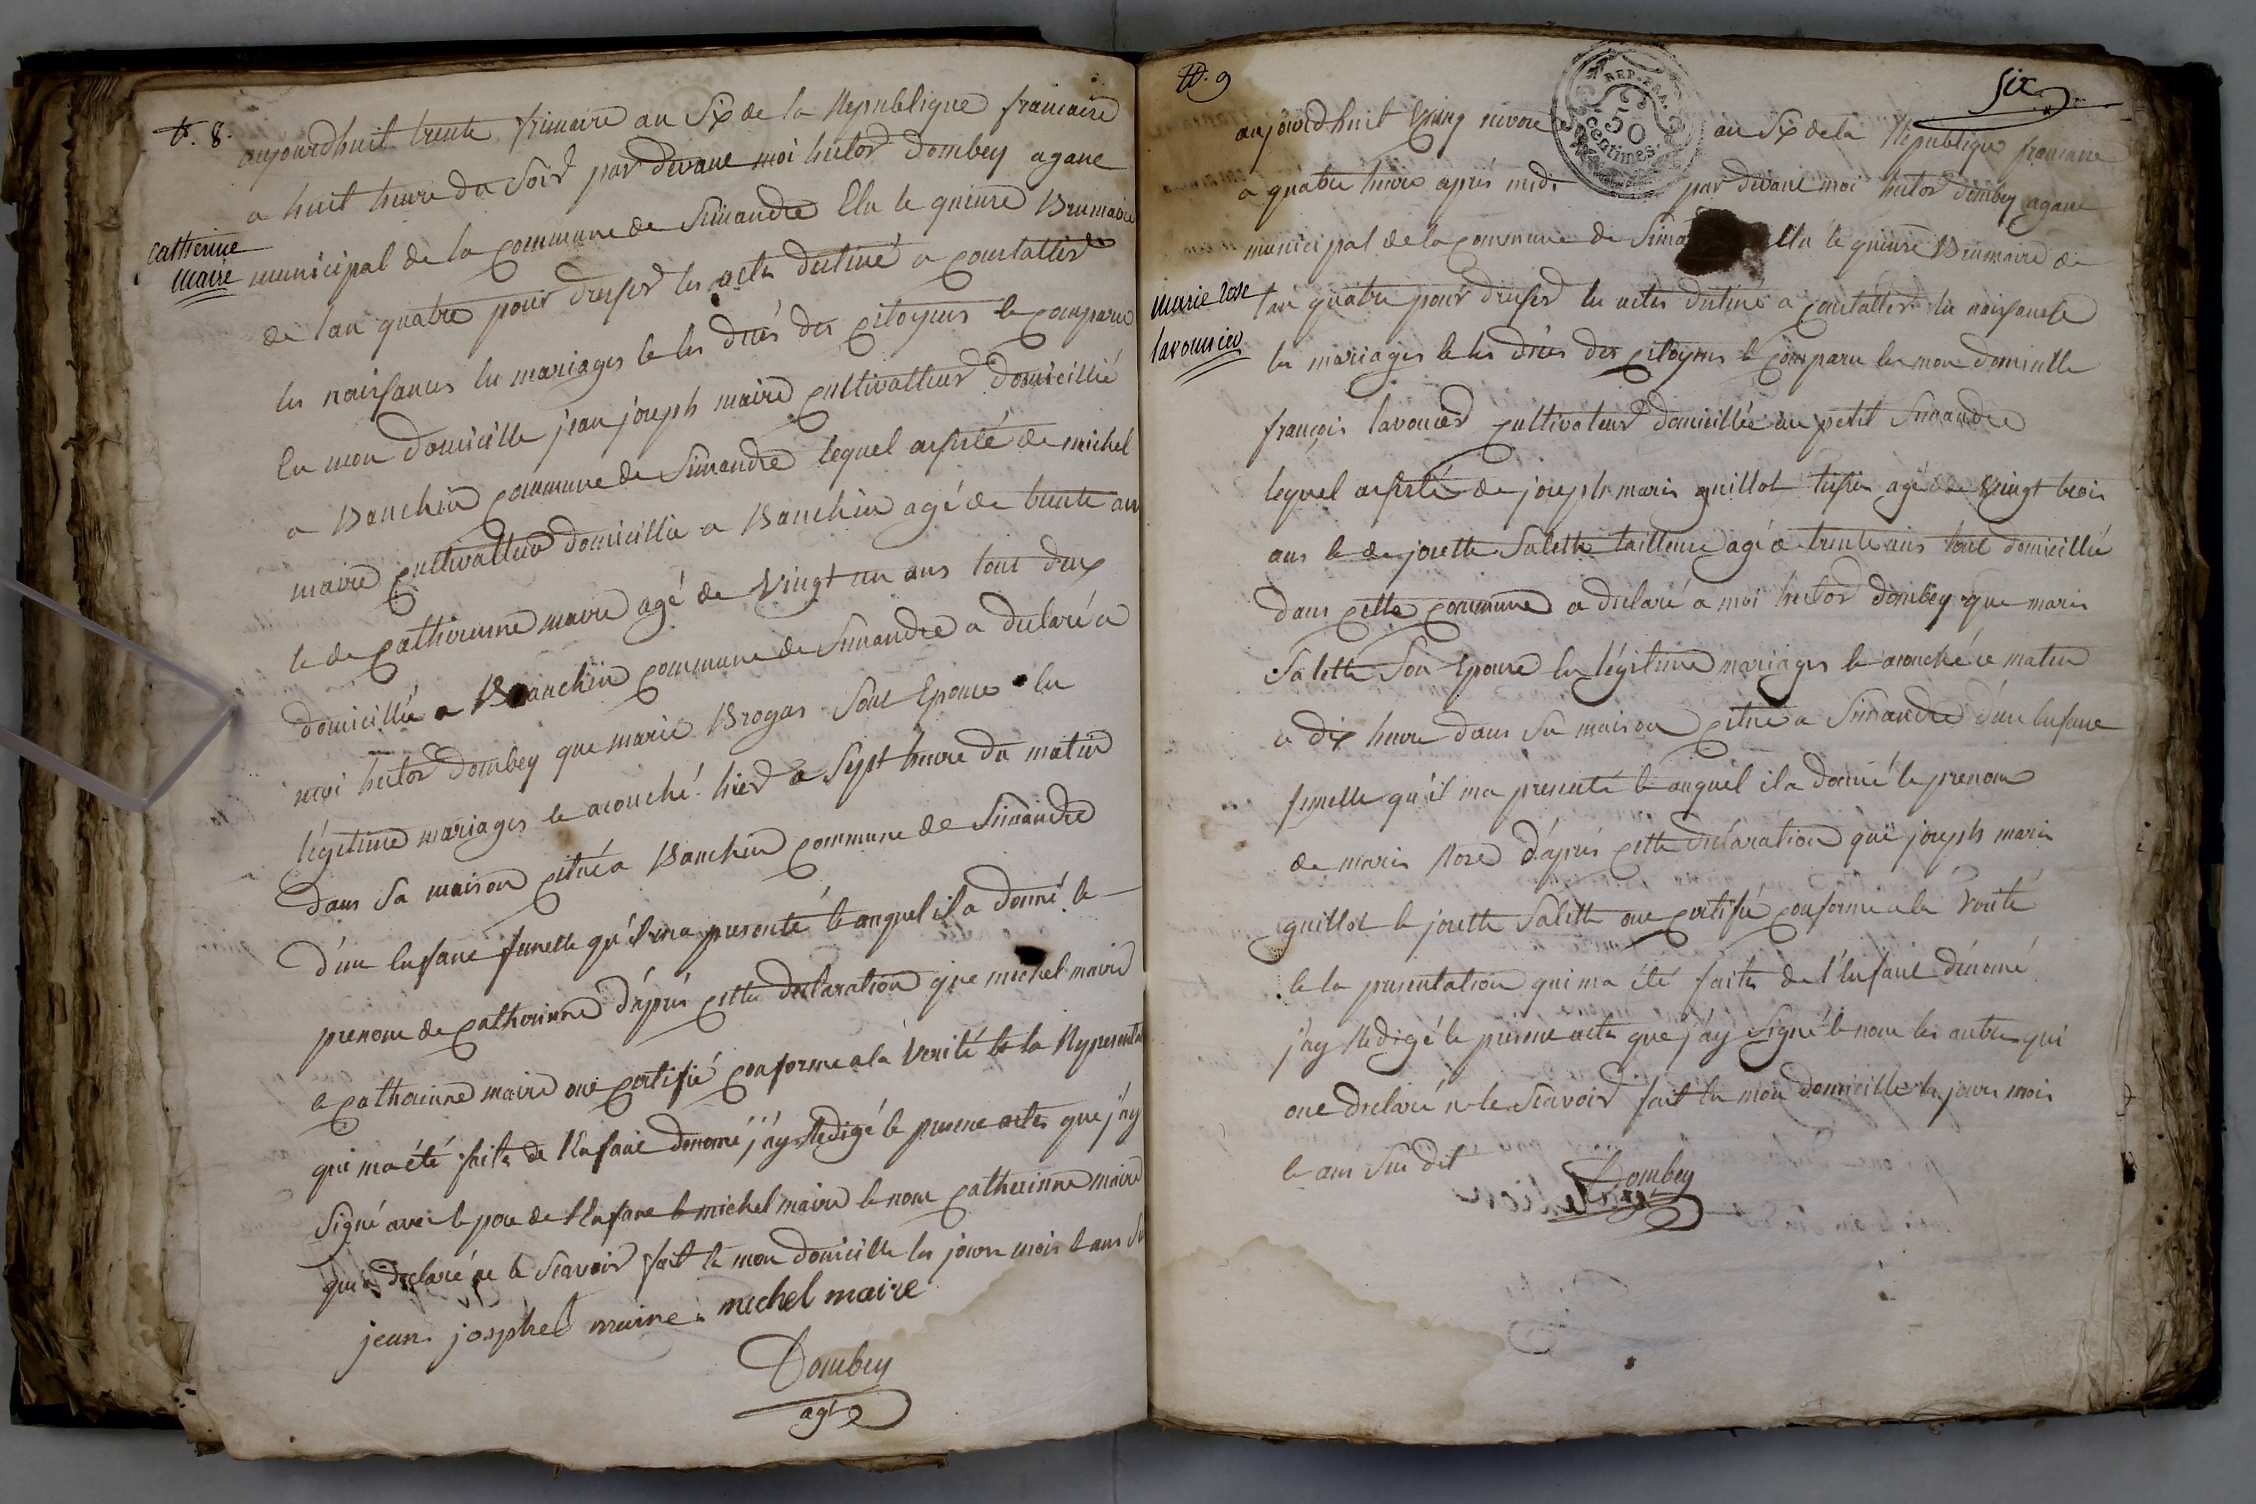 N. 8.
aujourdhuit trente frimaire an Six de la Republique francaise
a huit heure du Soir par devant moi hector Dombey agane
Catherine
Maire
municipal de la commune de Simandre Elu le quinze Brumaire
de lan quatre pour dresser les actes destiné a constatter
les naissances les mariages le les décés des citoyens le comparu
En mon domicille jean joseph maire cultivatteur domicillié
a Banchin commune de Simandre lequel assisté de michel
maire cultivatteur domicillié a Banchin agé de trente ans
le de catherinne maire agé de Vingt un ans tout deux
domicillié a Banchin commune de Simandre a declaré a
moi hector Dombey que marie Brogas Sont Epouse En
légitime mariages le acouché hier a Sept heure du matin
dans Sa maison citué a Banchin commune de Simandre
d'un Enfane fumelle qu'il ma presenté le auquel il a donné le
prenom de catherinne d'après cette declaration que michel maire
e catherinne maire one certifié conforme a la Verité le la Represent
qui ma été faite de l'Enfane denomé j'ay Redigé le presene actes que j'ay
Signé avec le pere de l'Enfane le michel maire le none catherinne maire
qui a declaré ne le Scavoir fait le mon domicille les jours mois le ans Su
jean josphe maire michel maire
Dombey
agt
N. 9
Six
REP. FRA.
50
centimes
aujourdhuit Vving nivose an Six de la Republique francaise
a quatre heure aprés midi par devane moi hector Dombey agane
municipal de la commune de Sima Elu le quinze Brumaire de
Marie Rose
lavouiier
l'an quatre pour dresser les actes destiné a constatter les naissanse
les mariages le les décés des citoyens le comparu En mon domicille
françois lavouier cultivateur domicillié au petit Simandre
lequel assisté de joseph marie guillot tissier agé de Vingt trois
ans le de josette Salette tailleuse agé de trente ans tout domicillié
dans cette commune a declaré a moi hector Dombey que marie
Salette Son Epouse En légitime mariages le acouché ce matin
a dix heure dans Sa maison citué a Simandre d'un Enfane
fumelle qu'il ma presenté le auquel il a donné le prenom
de marie Rose d'après cette declaration que joseph marie
guillot le josette Salette one certifié conforme a la Verité
le la presentation qui ma été faite de l'Enfant dénomé
j'ay Redigé le presene acte que j'ay Signé le none les autres qui
one declaré ne le Scavoir fait En mon domicille les jours mois
le ans Sus dit
Dombey
agt